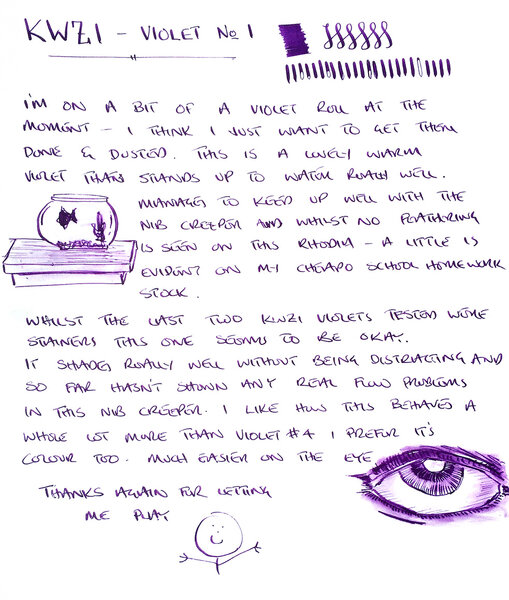 KWZI – VIOLET No 1
I'M ON A BIT OF A VIOLET ROLL AT THE
MOMENT – I THINK I JUST WANT TO GET THEM
DONE & DUSTED. THIS IS A LOVELY WARM
VIOLET THAT STANDS UP TO WATER REALLY WELL.
MANAGES TO KEEP UP WELL WITH THE
NIB CREEPER AND WHILST NO FEATHERING
IS SEEN ON THIS RHODIA – A LITTLE IS
EVIDENT ON MY CHEAPO SCHOOL HOMEWORK
STOCK.
WHILST THE LAST TWO KWZI VIOLETS TESTED WERE
STAINERS THIS ONE SEEMS TO BE OKAY.
IT SHADES REALLY WELL WITHOUT BEING DISTRACTING AND
SO FAR HASN'T SHOWN ANY REAL FLOW PROBLEMS
IN THIS NIB CREEPER. I LIKE HOW THIS BEHAVES A
WHOLE LOT MORE THAN VIOLET #4 I PREFER IT'S
COLOUR TOO. MUCH EASIER ON THE EYE
THANKS AGAIN FOR LETTING
ME PLAY